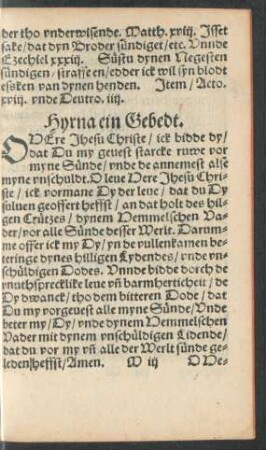 der tho vnderwisende. Matth. xviij. Isset
sake/dat dyn Broder sündiget/etc. Vnnde
Ezechiel xxxiij. Süstu dynen Negesten
sündigen/straffe en/edder ick wil syn blodt
esöken van dynen henden. Item/Acto.
xxij. vnde Deutro. iiij.
Hyrna ein Gebedt.
OHEre Jhesu Christe/ick bidde dy/
dat Du my geuest starcke ruwe vor
myne Sünde/vnde de annemest alse
myne vnschuldt. O leue Here Jhesu Chri-
ste/ick vormane Dy der leue/dat du Dy
suluen geoffert heffst/an dat holt des hil-
gen Crützes/dynem Hemmelschen Va-
der/vor alle Sünde desser Werlt. Darum-
me offer ick my Dy/yn de vullenkamen be-
teringe dynes hilligen Lydendes/vnde vn-
schüldigen Dodes. Vnnde bidde dorch de
vnuthspreklike leue vñ barmherticheit/de
Dy dwanck/tho dem bitteren Dode/dat
Du my vorgeuest alle myne Sünde/Vnde
beter my/Dy/vnde dynem Hemmelschen
Vader mit dynem vnschüldigen Lidende/
dat du vor my vñ alle der Werlt sünde ge-
leden heffst/Amen. M iij O He-